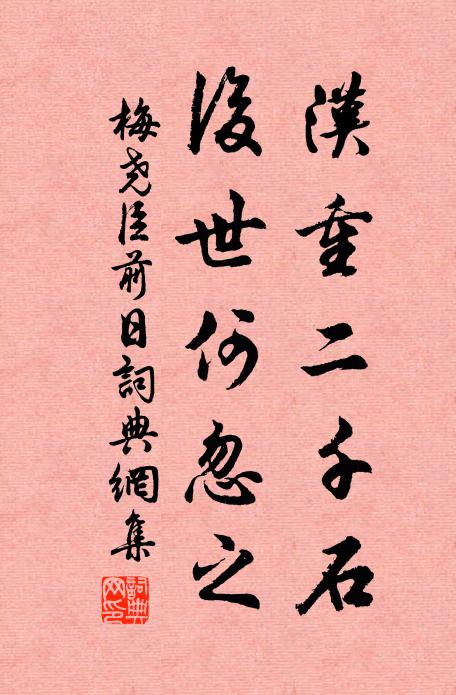 漢重二千石
後世何忽之
梅堯臣前日詞典網集
詞典
网印